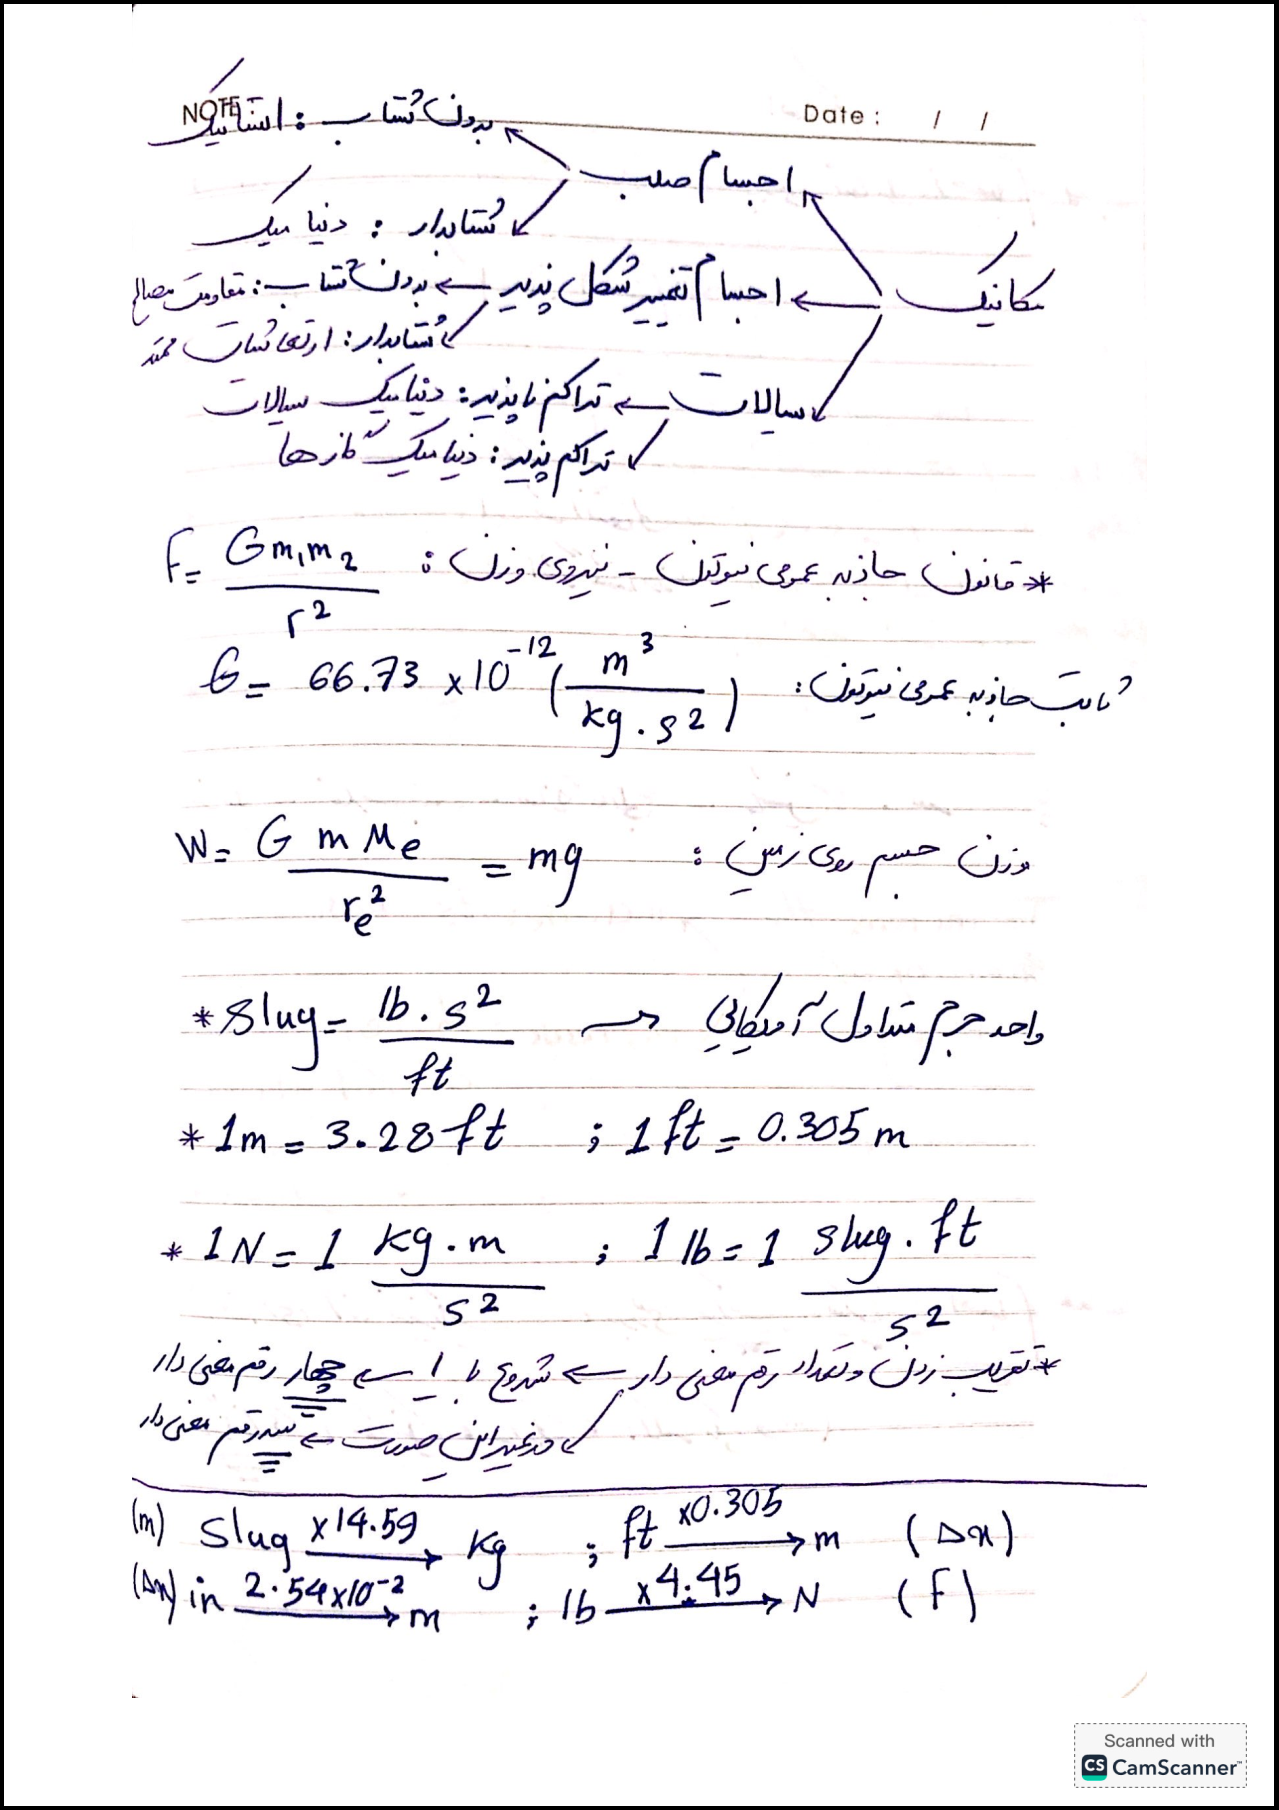 NOTE
Date : / /
بدون شتاب : استاتیک
اجسام صلب
شتابدار : دینامیک
مکانیک
اجسام تغییر شکل پذیر ← بدون شتاب : مقاومت مصالح
شتابدار : ارتعاشات ممتد
سیالات ← تراکم ناپذیر : دینامیک سیالات
تراکم پذیر : دینامیک گازها
* قانون جاذبه عمومی نیوتون - نیروی وزن : F = G m₁m₂ / r²
ثابت جاذبه عمومی نیوتون : G = 66.73 × 10⁻¹² (m³ / kg . s²)
وزن جسم روی زمین : W = G m Me / re² = mg
* Slug = lb . s² / ft → واحد جرم متداول آمریکایی
* 1m = 3.28 ft ; 1 ft = 0.305 m
* 1 N = 1 kg . m / s² ; 1 lb = 1 slug . ft / s²
* تقریب زدن و تعداد رقم معنی دار ← شروع با 1 ← چهار رقم معنی دار
در غیر این صورت ← سه رقم معنی دار
(m) Slug ×14.59 → kg ; ft ×0.305 → m (Δx)
(Δx) in 2.54×10⁻² → m ; lb ×4.45 → N (F)
Scanned with
CS CamScanner